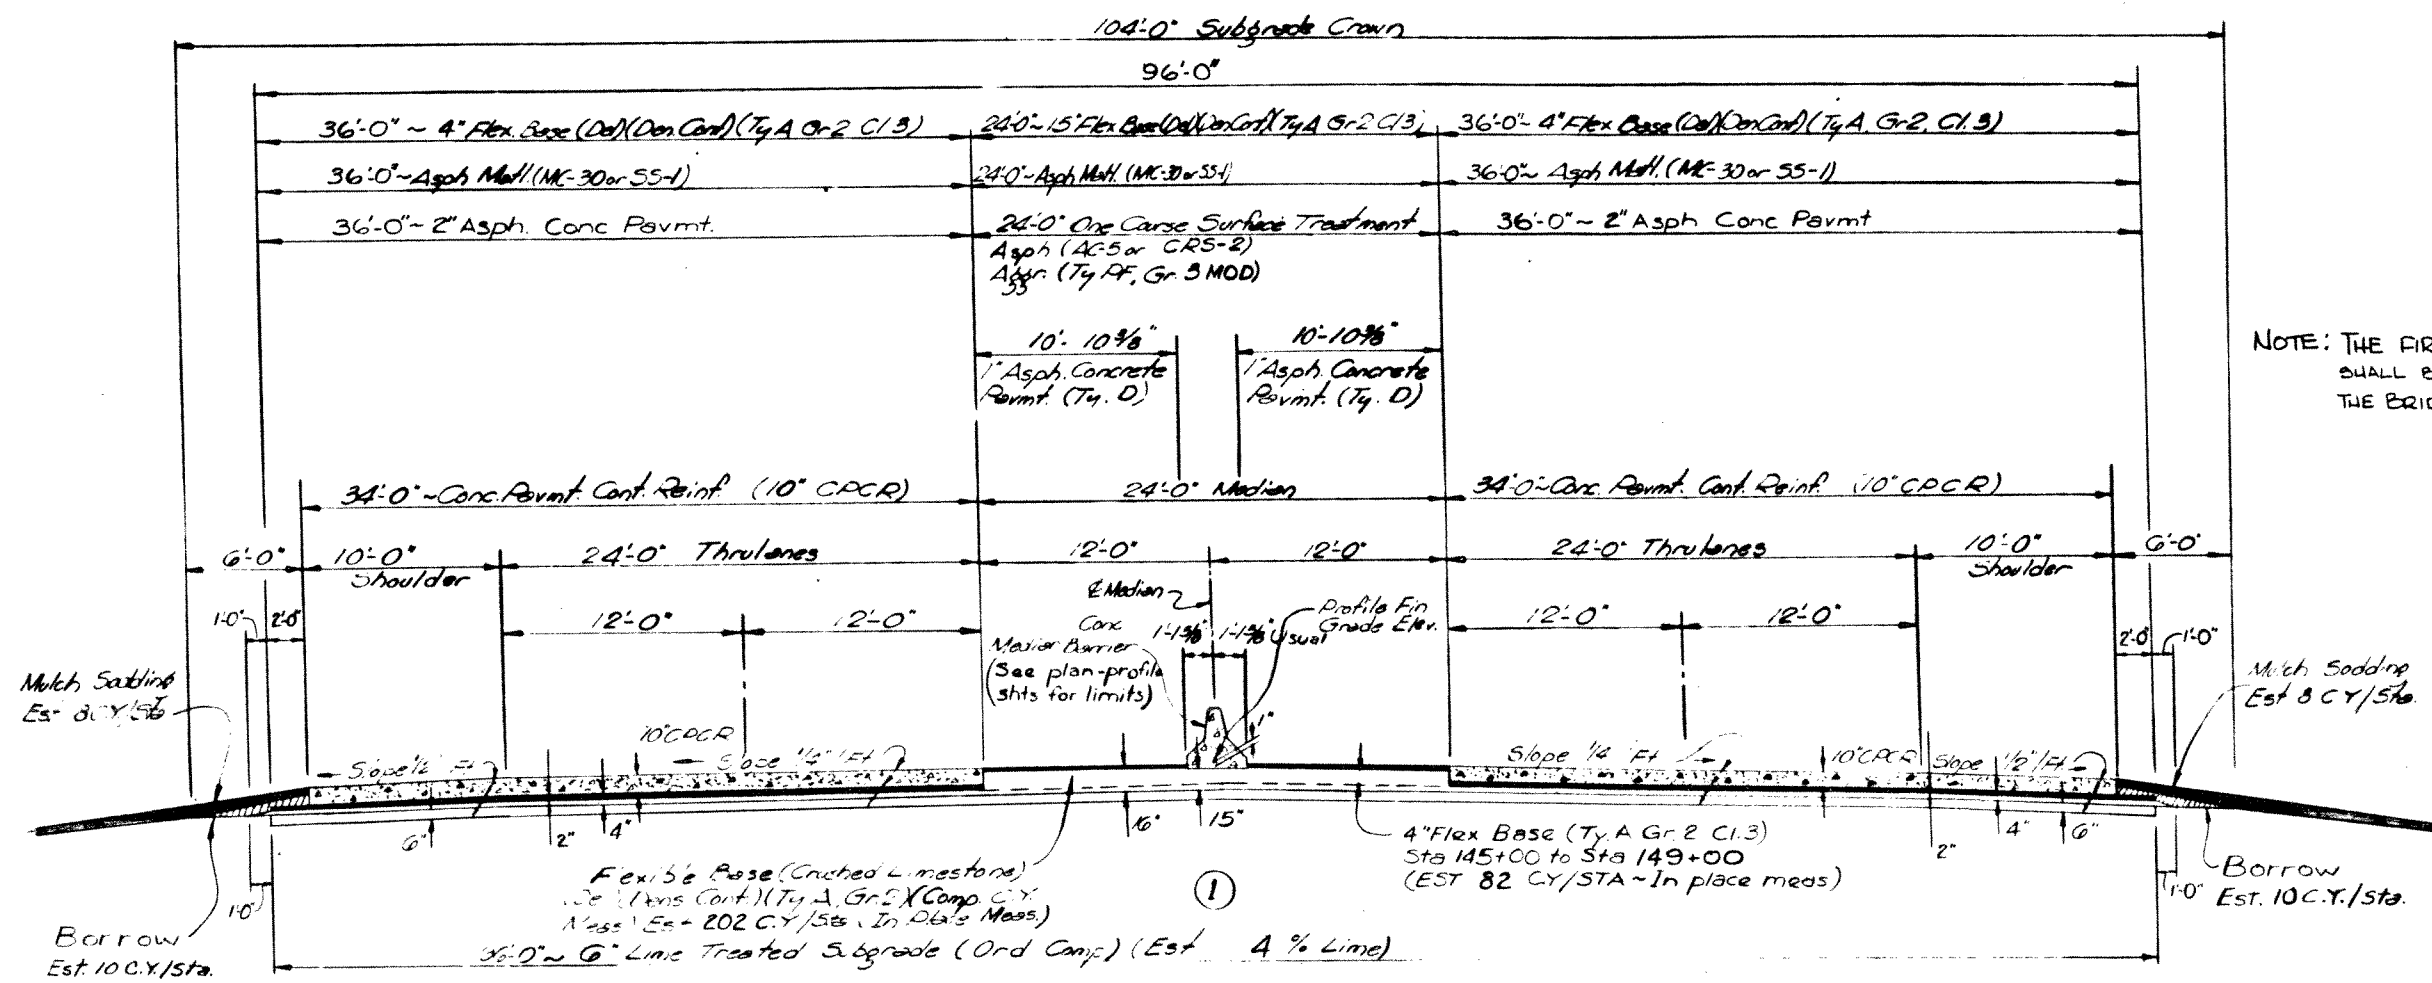 104'-0" Subgrade Crown
96'-0"
36'-0" ~ 4" Flex. Base (Del)(Den Cont)(Ty A Gr 2 Cl 3)
24'-0" ~ 15" Flex Base (Del)(Den Cont)(Ty A Gr 2 Cl 3)
36'-0" ~ 4" Flex Base (Del)(Den Cont)(Ty A. Gr 2, Cl. 3)
36'-0" ~ Asph Matl. (MC-30 or SS-1)
24'-0" ~ Asph Matl. (MC-30 or SS-1)
36'-0" ~ Asph Matl. (MC-30 or SS-1)
36'-0" ~ 2" Asph. Conc Pavmt.
24'-0" One Course Surface Treatment
Asph (AC-5 or CRS-2)
Aggr. (Ty PF, Gr. 3 MOD)
36'-0" ~ 2" Asph Conc Pavmt
10'- 10 3/8"
1" Asph. Concrete
Pavmt. (Ty. D)
10'-10 3/8"
1" Asph. Concrete
Pavmt. (Ty. D)
NOTE: THE FIR
SHALL B
THE BRID
34'-0" ~ Conc. Pavmt. Cont. Reinf. (10" CPCR)
24'-0" Median
34'-0" ~ Conc. Pavmt. Cont. Reinf. (10" CPCR)
6'-0"
10'-0"
Shoulder
24'-0" Thrulanes
12'-0"
12'-0"
24'-0" Thrulanes
10'-0"
Shoulder
6'-0"
1'-0"
2'-0"
12'-0"
12'-0"
℄ Median
Conc
Median Barrier
(See plan-profile
shts for limits)
1'-1 5/8"
1'-1 5/8" Usual
Profile Fin
Grade Elev.
12'-0"
12'-0"
2'-0"
1'-0"
Mulch Sodding
Est 8 C.Y/Sta
Mulch Sodding
Est 8 C Y/Sta.
Slope 1/2" Ft
10" CPCR
Slope 1/4" /Ft
1"
Slope 1/4" Ft
10" CPCR
Slope 1/2"/Ft
6"
2"
4"
16"
15"
2"
4"
6"
4" Flex Base (Ty. A Gr. 2 Cl. 3)
Sta 145+00 to Sta 149+00
(EST 82 CY/STA ~ In place meas)
Flexible Base (Crushed Limestone)
(Dens Cont)(Ty A, Gr. 2)(Comp. C.Y.
Meas) Est 202 C.Y/Sta. In Place Meas.)
1
1'-0"
1'-0"
Borrow
Est. 10 C.Y./Sta.
Borrow
Est. 10 C.Y./Sta.
96'-0" ~ 6" Lime Treated Subgrade (Ord Comp) (Est 4 % Lime)